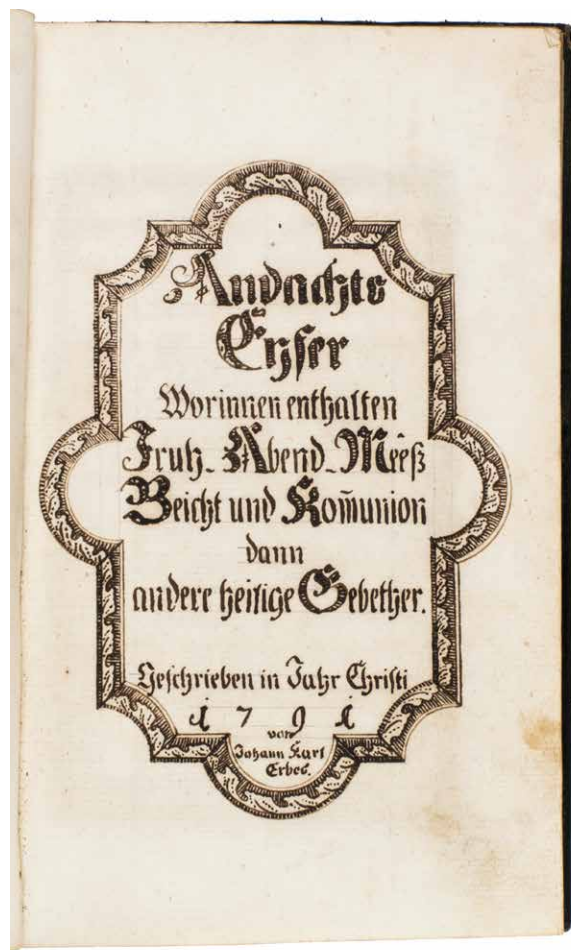 Andachts
Eyfer
Worinnen enthalten
Fruh- Abend- Meeß
Beicht und Kom̅union
dann
andere heilige Gebether.
Geschrieben in Jahr Christi
1791
von
Johann Karl
Erbes.